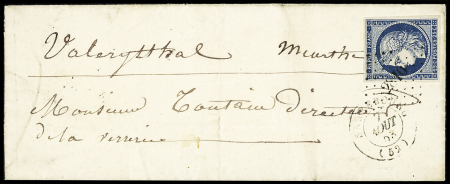 Valerysthal Meurthe
Monsieur Toutain Directeur
de la verrerie
AOUT
(52)